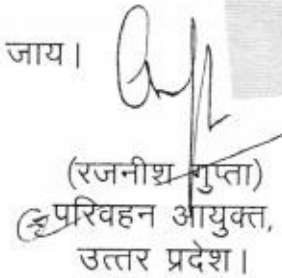 जाय।
(रजनीश गुप्ता)
परिवहन आयुक्त,
उत्तर प्रदेश।